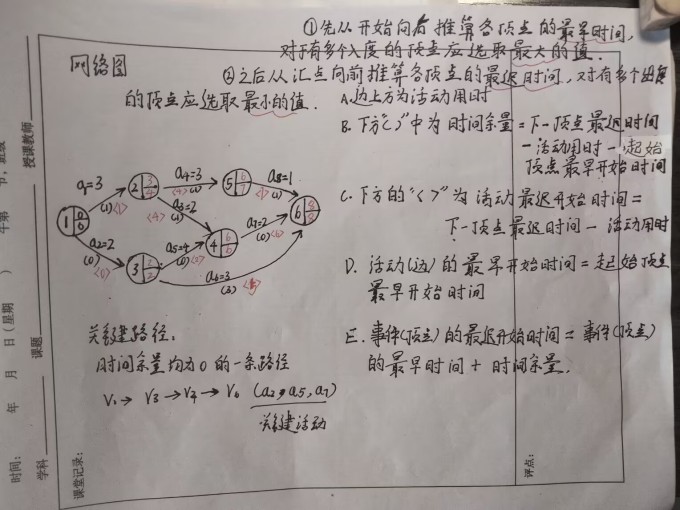 ①先从开始向后推算各顶点的最早时间,
对于有多个入度的顶点应选取最大的值.
网络图
②之后从汇点向前推算各顶点的最迟时间,对有多个出度
的顶点应选取最小的值.
A.边上方为活动用时
B.下方"()"中为时间余量=下一顶点最迟时间
-活动用时-起始
顶点最早开始时间
C.下方的"< >"为活动最迟开始时间=
下一顶点最迟时间-活动用时
D.活动(边)的最早开始时间=起始顶点
最早开始时间
E.事件(顶点)的最迟开始时间=事件(顶点)
的最早时间+时间余量.
a₁=3
(1)
<1>
2
3
4
a₄=3
<4>
(1)
5
6
7
a₈=1
<7>
(1)
1
0
0
a₃=2
<4>
(1)
6
8
8
a₂=2
(0)
<0>
3
2
2
a₅=4
(0)
<2>
4
6
6
a₇=2
(0)
<6>
a₆=3
(3)
<5>
关键路径:
时间余量均为0的一条路径
V₁→V₃→V₄→V₆ (a₂,a₅,a₇)
关键活动
时间: 年 月 日(星期 )
学科
课题
授课教师
课堂记录:
评点: